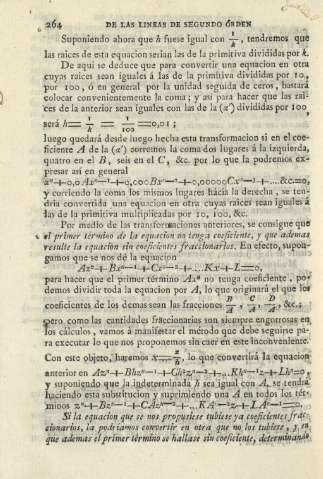 264 DE LAS LINEAS DE SEGUNDO ÓRDEN
Suponiendo ahora que h fuese igual con 1/k, tendremos que
las raices de esta equacion serian las de la primitiva divididas por k.
De aqui se deduce que para convertir una equacion en otra
cuyas raices sean iguales á las de la primitiva divididas por 10,
por 100, ó en general por la unidad seguida de ceros, bastará
colocar convenientemente la coma; y asi para hacer que las raí-
ces de la anterior sean iguales con las de la (α') divididas por 100
será h = 1/k = 1/100 = 0,01;
luego quedará desde luego hecha esta transformacion si en el coe-
ficiente A de la (α') corremos la coma dos lugares á la izquierda,
quatro en el B, seis en el C, &c. por lo que la podremos ex-
presar así en general
+0,00 +0,000 +0,0000 +....&c.=0,
y corriendo la coma los mismos lugares hácia la derecha, se ten-
dria convertida una equacion en otra cuyas raices sean iguales á
las de la primitiva multiplicadas por 10, 100, &c.
Por medio de las transformaciones anteriores, se consigue que
el primer término de la equacion no tenga coeficiente, y que ademas
resulte la equacion sin coeficientes fraccionarios. En efecto, supon-
gamos que se nos dé la equacion
Axⁿ+Bxⁿ⁻¹+Cxⁿ⁻²+...Kx+L=0,
para hacer que el primer término Axⁿ no tenga coeficiente, po-
demos dividir toda la equacion por A, lo que originará el que los
coeficientes de los demas sean las fracciones B/A, C/A, D/A, &c.;
pero como las cantidades fraccionarias son siempre engorrosas en
los cálculos, vamos á manifestar el método que debe seguirse pa-
ra executar lo que nos proponemos sin caer en este inconveniente.
Con este objeto, haremos x=z/h, lo que convertirá la equacion
anterior en Azⁿ+Bhzⁿ⁻¹+Ch²zⁿ⁻²+..Khⁿ⁻¹z+Lhⁿ=0,
y suponiendo que la indeterminada h sea igual con A, se tendrá
haciendo esta substitucion y suprimiendo una A en todos los tér-
minos zⁿ+Bzⁿ⁻¹+CAzⁿ⁻²+...KAⁿ⁻²z+LAⁿ⁻¹=0.
Si la equacion que se nos propusiese tubiese ya coeficientes frac-
cionarios, la podriamos convertir en otra que no los tubiese, y en
que ademas el primer término se hallase sin coeficiente, determinando